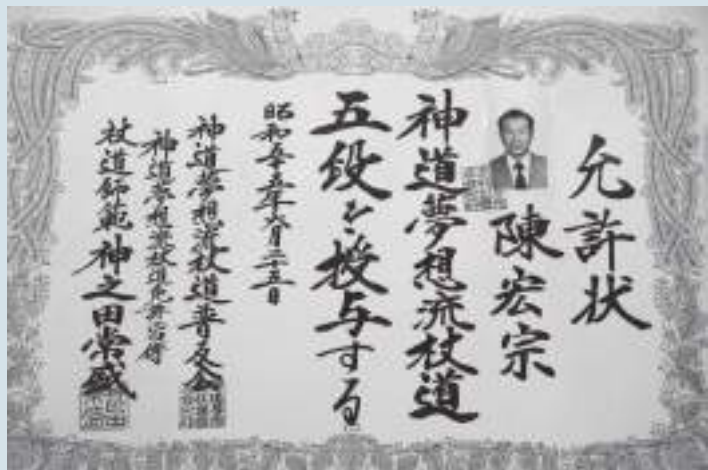 允許状
陳宏宗
神道夢想流杖道
五段を授与する
昭和五十五年六月二十五日
神道夢想流杖道普及会
神道夢想流杖道免許皆傳
杖道師範 神之田常盛